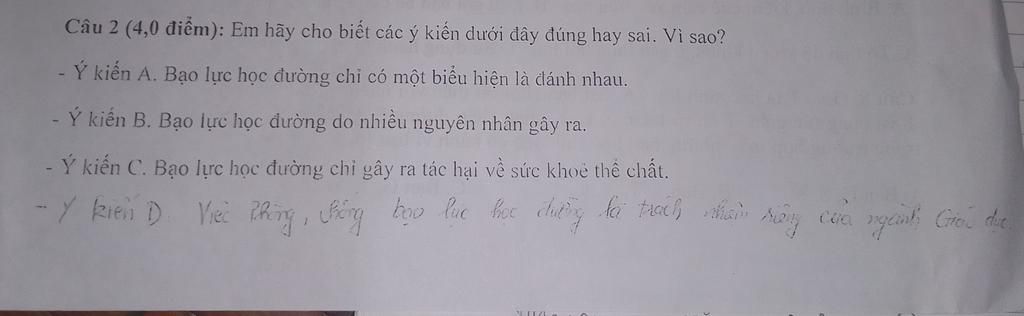 Câu 2 (4,0 điểm): Em hãy cho biết các ý kiến dưới đây đúng hay sai. Vì sao?
- Ý kiến A. Bạo lực học đường chỉ có một biểu hiện là đánh nhau.
- Ý kiến B. Bạo lực học đường do nhiều nguyên nhân gây ra.
- Ý kiến C. Bạo lực học đường chỉ gây ra tác hại về sức khoẻ thể chất.
- Ý kiến D. Việc phòng, chống bạo lực học đường là trách nhiệm riêng của ngành Giáo dục.